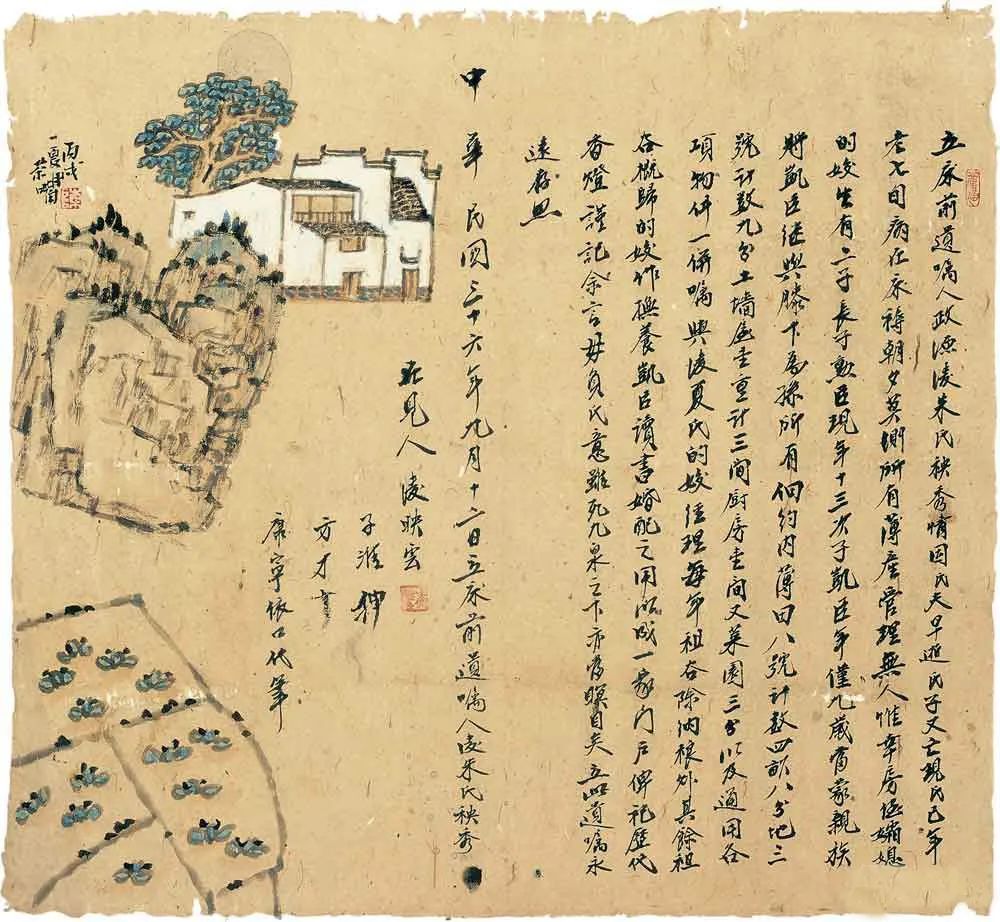 立床前遺嘱人政源淩朱氏秧秀情因氏夫早逝氏子又亡現氏已年
老七旬病在床褥朝夕莫測所有薄產管理無人惟幸房侄孀媳
的姣生有二子長子勲臣現年十三次子凱臣年僅九歲當蒙親族
將凱臣继與膝下為孫所有佃約内薄田八號計数四畝八分地三
號計数九分土墙屋壹重計三间厨房壹间又菜園三分以及通用各
項物件一併嘱與淩夏氏的姣经理每年租谷除纳粮外其餘租
谷概歸的姣作撫養凱臣讀書婚配之用以成一家门户俾祀歷代
香燈謹記余言毋負氏意雖死九泉之下亦當瞑目矣立此遺嘱永
遠存照
中華民国三十六年九月十六日立床前遺嘱人淩朱氏秧秀
在見人淩映雲
子淮押
方才
康寧依口代筆
丙戌
夏